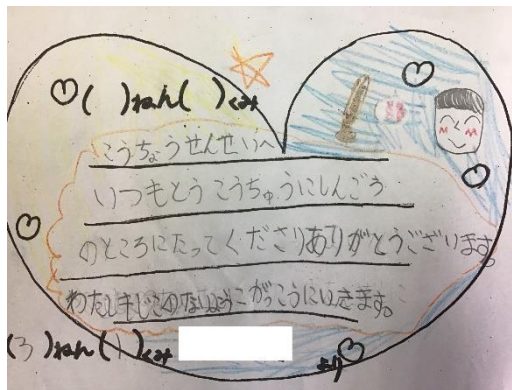 ( )ねん( )くみ
こうちょうせんせいへ
いつもとうこうちゅうにしんごう
のところにたってくださりありがとうございます。
わたしもじこのないようにがっこうにいきます。
(3)ねん(1)くみ
より